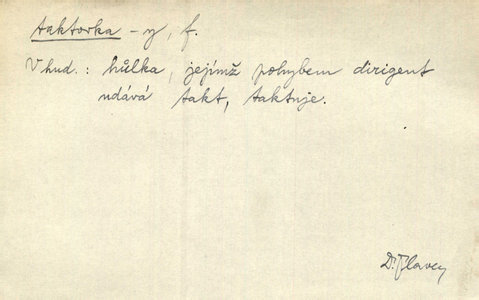 taktovka – y, f.
V hud.: hůlka, jejímž pohybem dirigent
udává takt, taktuje.